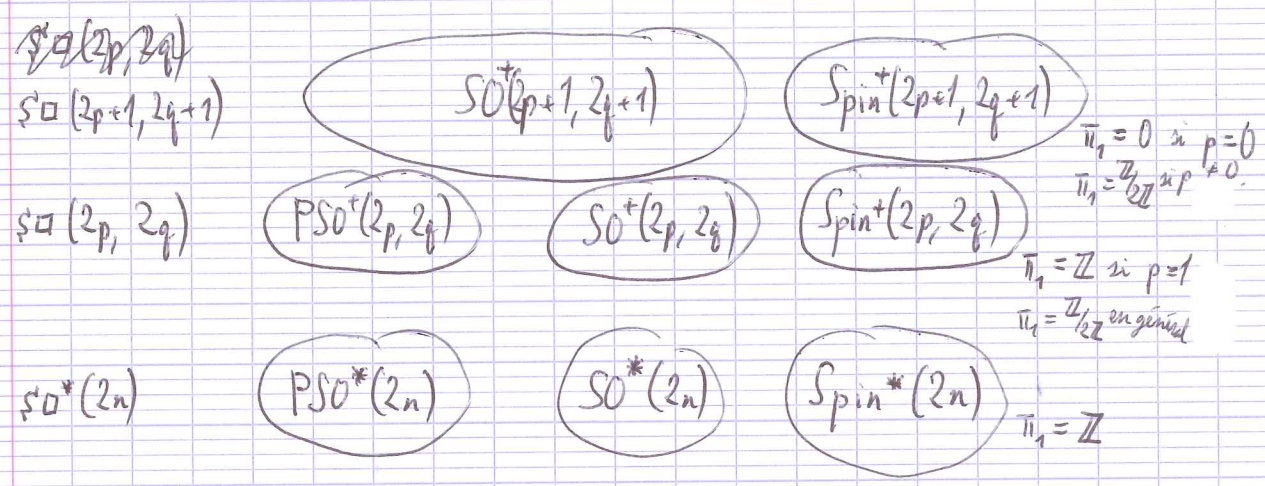 𝔰𝔬(2p, 2q)
𝔰𝔬(2p+1, 2q+1) SO⁺(2p+1, 2q+1) Spin⁺(2p+1, 2q+1)
π₁ = 0 si p=0
π₁ = ℤ/2ℤ si p≠0.
𝔰𝔬(2p, 2q) PSO⁺(2p, 2q) SO⁺(2p, 2q) Spin⁺(2p, 2q)
π₁ = ℤ si p=1
π₁ = ℤ/2ℤ en général
𝔰𝔬*(2n) PSO*(2n) SO*(2n) Spin*(2n)
π₁ = ℤ